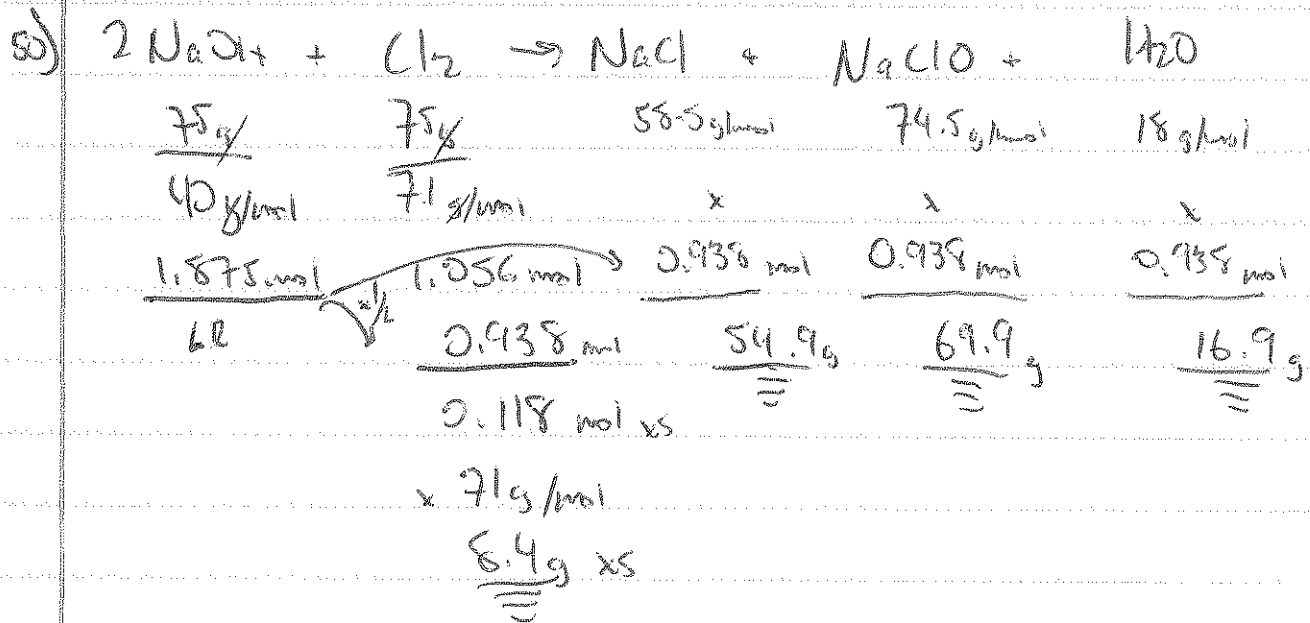 50) 2 NaOH + Cl2 → NaCl + NaClO + H2O
75g 75g 58.5 g/mol 74.5 g/mol 18 g/mol
40 g/mol 71 g/mol x x x
1.875 mol 1.056 mol 0.938 mol 0.938 mol 0.938 mol
LR x 1/2 0.938 mol 54.9g 69.9 g 16.9 g
0.118 mol xs
x 71g/mol
8.4g xs